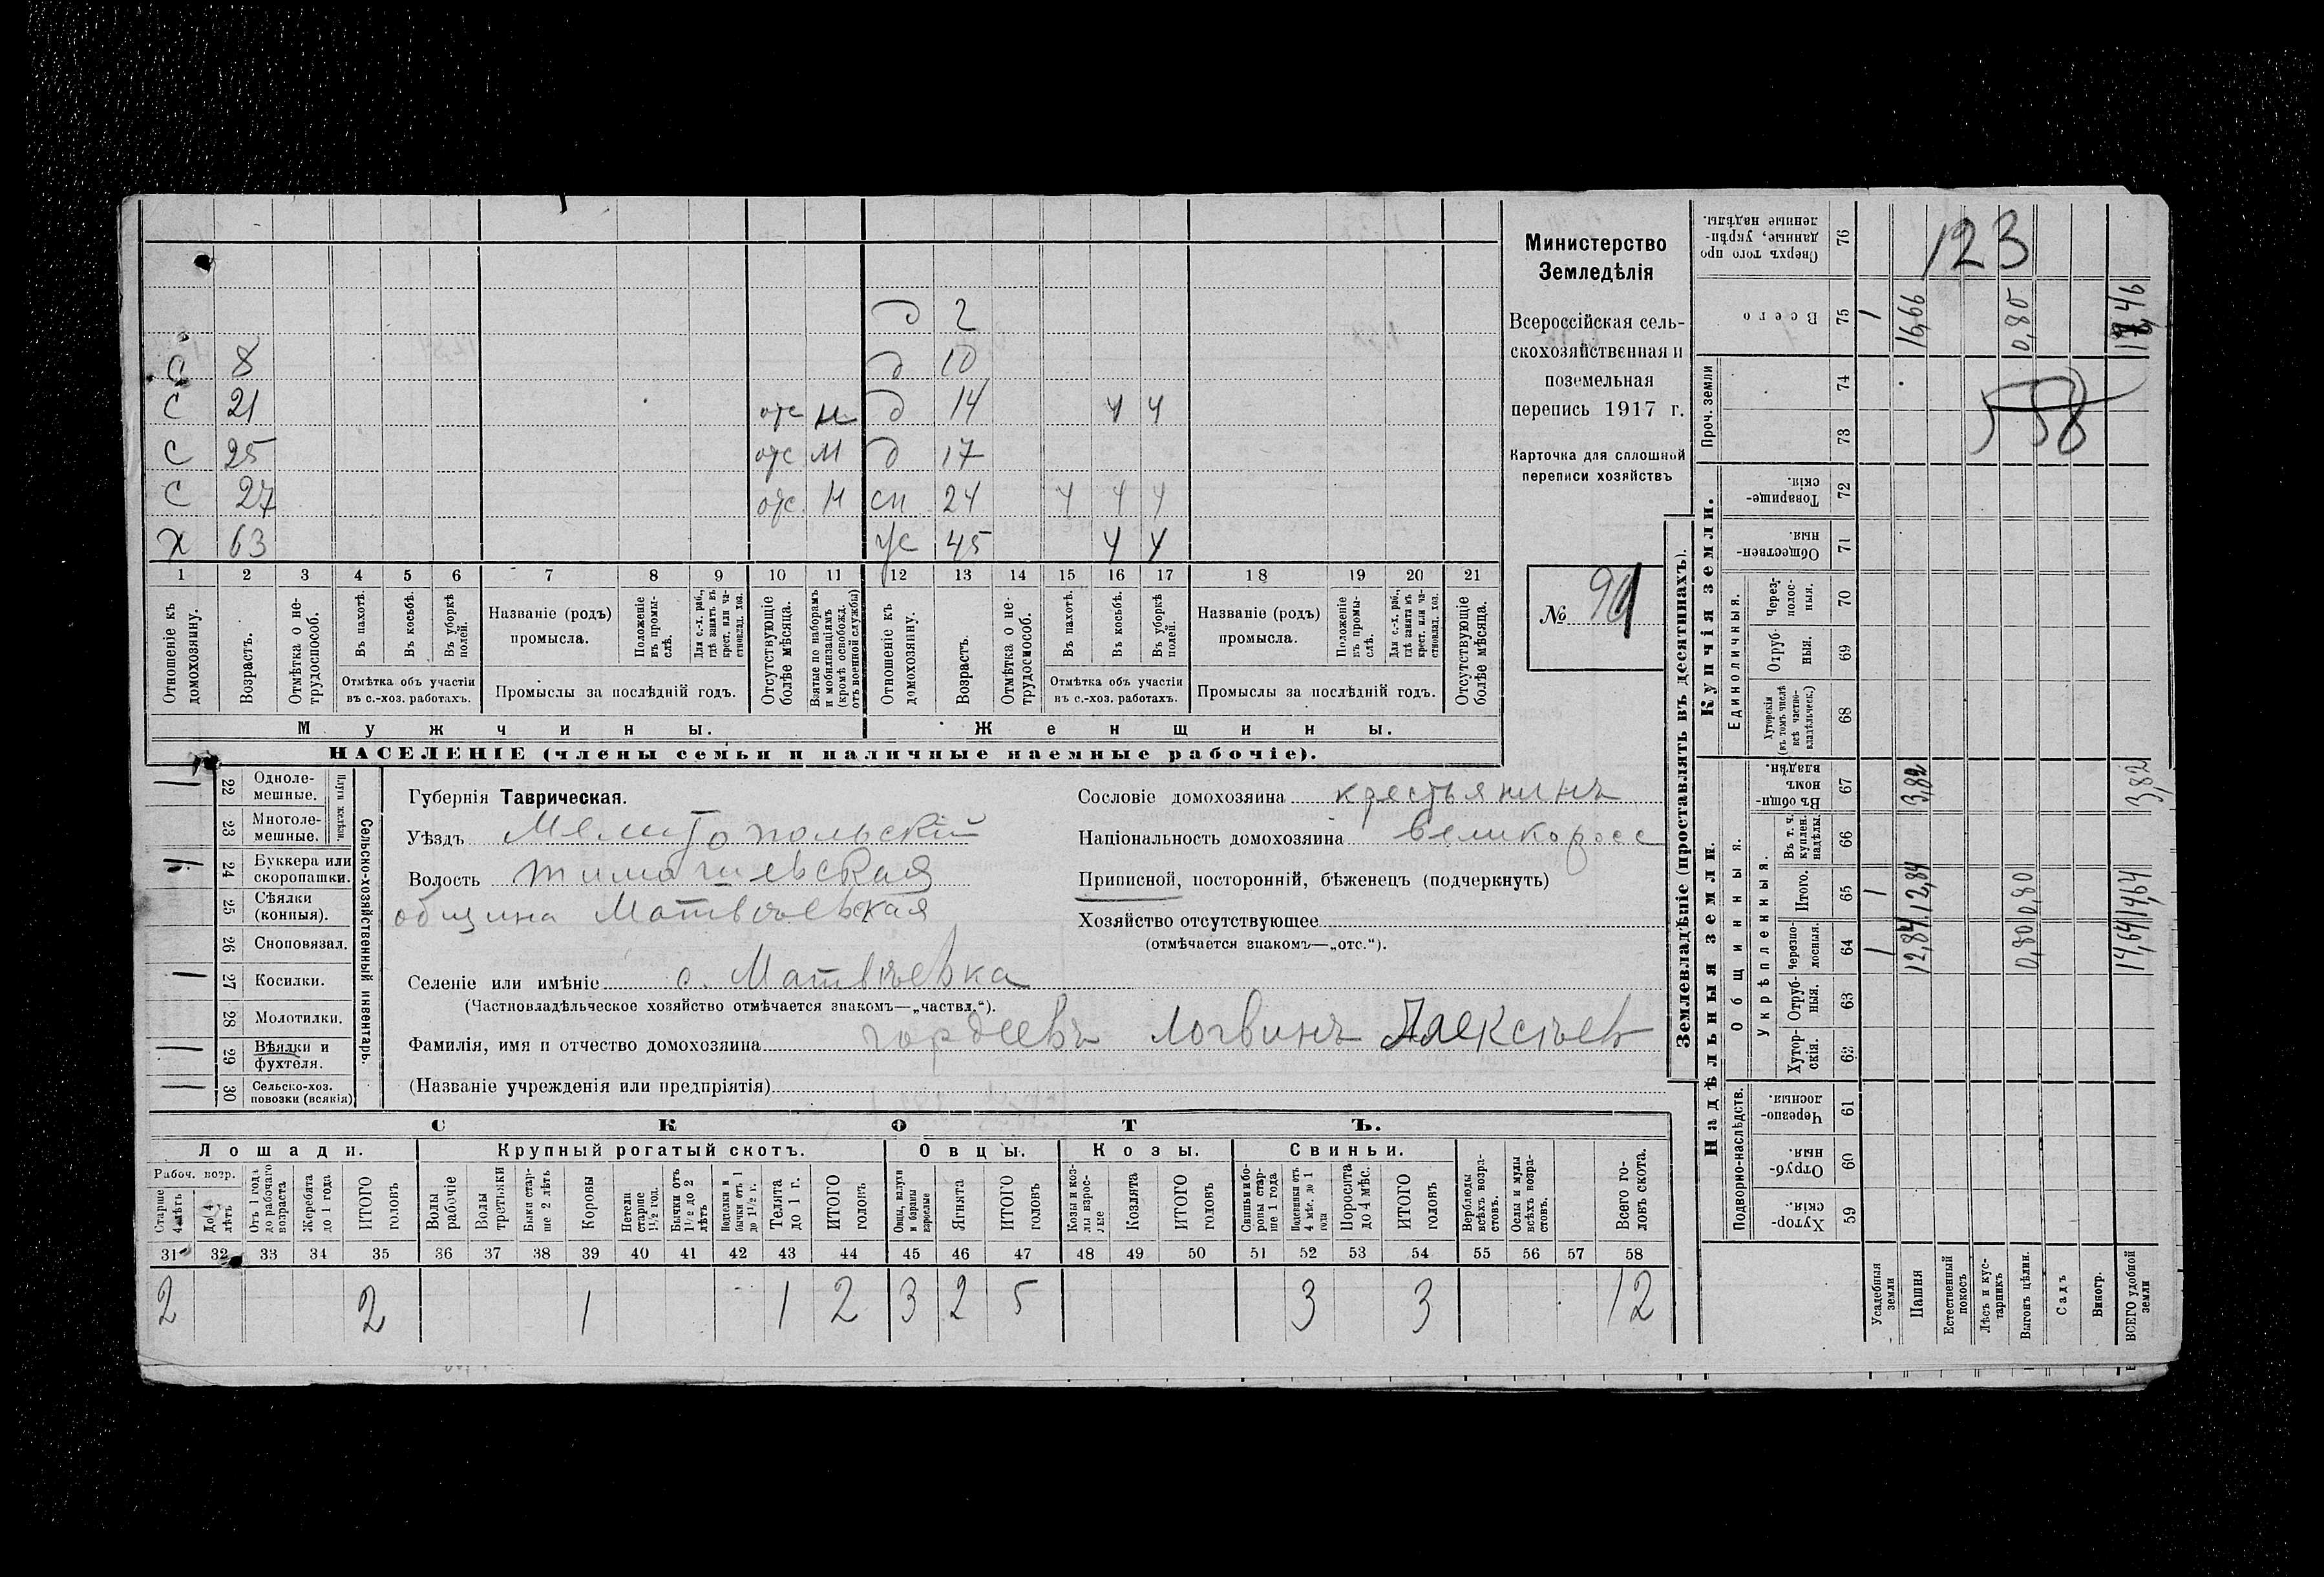 д 2
с 8 д 10
с 21 отс м д 14 ч ч
с 25 отс м д 17
с 27 отс м сн 24 ч ч ч
х 63 ж 45 ч ч
1 2 3 4 5 6 7 8 9 10 11 12 13 14 15 16 17 18 19 20 21
Отношеніе къ домохозяину.
Возрастъ.
Отмѣтка о нетрудоспособ.
Въ пахотѣ.
Въ косьбѣ.
Въ уборкѣ полей.
Отмѣтка объ участіи въ с.-хоз. работахъ.
Названіе (родъ) промысла.
Положеніе въ промыслѣ.
Для с.-х. раб., гдѣ занятъ въ крест. или частновлад. хоз.
Промыслы за послѣдній годъ.
Отсутствующіе болѣе мѣсяца.
Взятые по наборамъ и мобилизаціямъ (кромѣ освобожд. отъ военной службы)
Отношеніе къ домохозяину.
Возрастъ.
Отмѣтка о нетрудоспособ.
Въ пахотѣ.
Въ косьбѣ.
Въ уборкѣ полей.
Отмѣтка объ участіи въ с.-хоз. работахъ.
Названіе (родъ) промысла.
Положеніе въ промыслѣ.
Для с.-х. раб., гдѣ занята въ крест. или частновлад. хоз.
Промыслы за послѣдній годъ.
Отсутствующіе болѣе мѣсяца.
Мужчины. Женщины.
НАСЕЛЕНІЕ (члены семьи и наличные наемные рабочіе).
Министерство
Земледѣлія
Всероссійская сель-
скохозяйственная и
поземельная
перепись 1917 г.
Карточка для сплошной
переписи хозяйствъ
№ 91
22 Одноле-мешные.
23 Многоле-мешные.
Плуги желѣзн.
24 Буккера или скоропашки.
25 Сѣялки (конныя).
26 Сноповязал.
27 Косилки.
28 Молотилки.
29 Вѣялки и фухтеля.
30 Сельско-хоз. повозки (всякія)
Сельско-хозяйственный инвентарь.
Губернія Таврическая.
Уѣздъ Мелитопольскій
Волость Тимашевская
община Матвѣевская
Селеніе или имѣніе с. Матвѣевка
(Частновладѣльческое хозяйство отмѣчается знакомъ—„частвл.“).
Фамилія, имя и отчество домохозяина Гордеевъ Логвинъ Алексѣев
(Названіе учрежденія или предпріятія)
Сословіе домохозяина крестьянинъ
Національность домохозяина великоросс
Приписной, посторонній, бѣженецъ (подчеркнуть)
Хозяйство отсутствующее
(отмѣчается знакомъ—„отс.“).
СКОТЪ.
Лошади. Крупный рогатый скотъ. Овцы. Козы. Свиньи.
Рабоч. возр.
Старше 4 лѣтъ
До 4 лѣтъ
Отъ 1 года до рабочаго возраста
Жеребята до 1 года
ИТОГО головъ
Волы рабочіе
Волы третьяки
Быки старше 2 лѣтъ
Коровы
Нетели старше 1½ год.
Бычки отъ 1½ до 2 лѣтъ
Подтелки и бычки отъ 1 до 1½ г.
Телята до 1 г.
ИТОГО головъ
Овцы, валухи и бараны взрослые
Ягнята
ИТОГО головъ
Козы и козлы взрослые
Козлята
ИТОГО головъ
Свиньи и боровы старше 1 года
Подсвинки отъ 4 мѣс. до 1 года
Поросята до 4 мѣс.
ИТОГО головъ
Верблюды всѣхъ возрастовъ.
Ослы и мулы всѣхъ возрастовъ.
Всего головъ скота.
31 32 33 34 35 36 37 38 39 40 41 42 43 44 45 46 47 48 49 50 51 52 53 54 55 56 57 58
2 2 1 1 2 3 2 5 3 3 12
Землевладѣніе (проставлять въ десятинахъ).
Надѣльныя земли. Купчія земли. Проч. земли
Подворно-наслѣдств.
Общинныя.
Укрѣпленныя.
Единоличныя.
Хуторскія. 59
Отрубныя. 60
Черезполосныя. 61
Хуторскія. 62
Отрубныя. 63
Черезполосныя. 64
Итого. 65
Въ т. ч. куплен. надѣлы. 66
Въ общинномъ владѣн. 67
Хуторскія (въ томъ числѣ всѣ частновладѣльческ.) 68
Отрубныя. 69
Черезполосныя. 70
Общественныя. 71
Товарищескія. 72
73
74
Всего 75
Сверхъ того проданные, укрѣпленные надѣлы. 76
Усадебныя земли 1 1 1
Пашня 12,84 12,84 3,82 16,66
Естественный покосъ
Лѣсъ и кустарникъ
Выгонъ цѣлин. 0,80 0,80 0,80
Садъ
Виногр.
ВСЕГО удобной земли 14,64 14,64 3,82 18,46
123
58